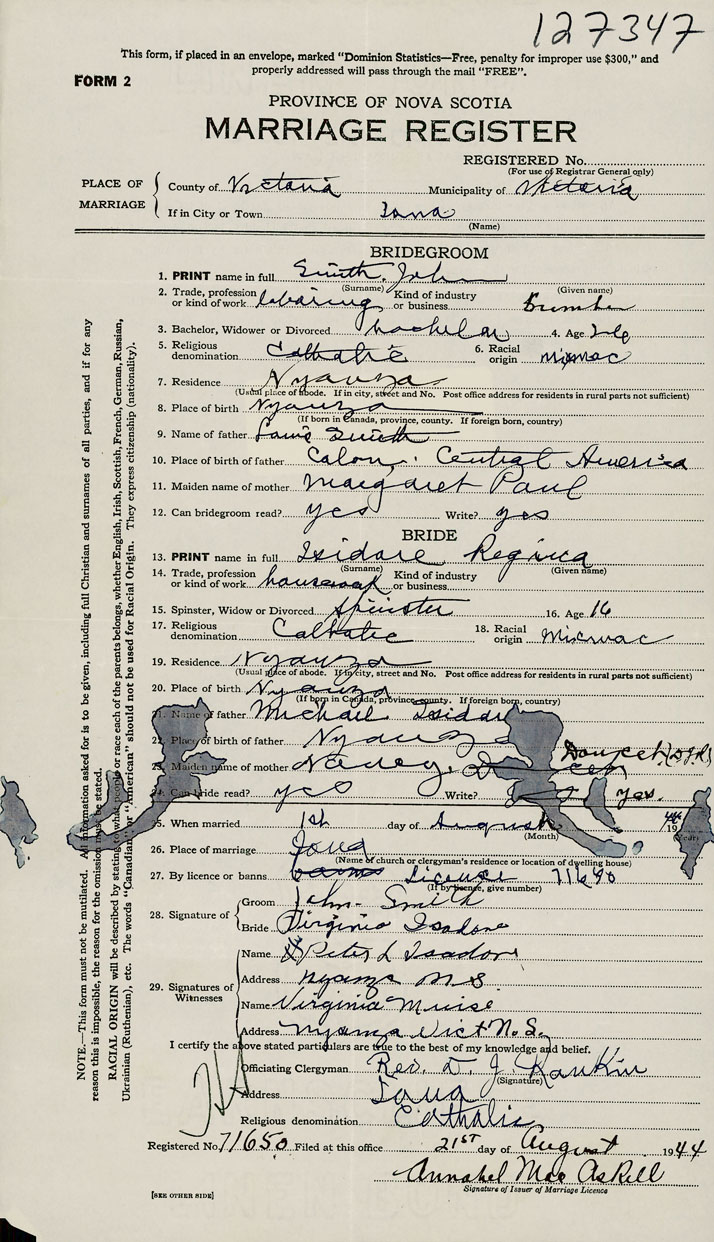 127347
This form, if placed in an envelope, marked "Dominion Statistics—Free, penalty for improper use $300," and
properly addressed will pass through the mail "FREE".
FORM 2
PROVINCE OF NOVA SCOTIA
MARRIAGE REGISTER
REGISTERED No.
(For use of Registrar General only)
PLACE OF MARRIAGE
County of Victoria Municipality of Victoria
If in City or Town Iona
(Name)
BRIDEGROOM
1. PRINT name in full Smith, John
(Surname) (Given name)
2. Trade, profession or kind of work laboring Kind of industry or business
3. Bachelor, Widower or Divorced bachelor 4. Age 26
5. Religious denomination Catholic 6. Racial origin micmac
7. Residence Nyanza
(Usual place of abode. If in city, street and No. Post office address for residents in rural parts not sufficient)
8. Place of birth Nyanza
(If born in Canada, province, county. If foreign born, country)
9. Name of father Louis Smith
10. Place of birth of father Colon, Central America
11. Maiden name of mother Margaret Paul
12. Can bridegroom read? yes Write? yes
BRIDE
13. PRINT name in full Isidore Regina
(Surname) (Given name)
14. Trade, profession or kind of work housework Kind of industry or business
15. Spinster, Widow or Divorced spinster 16. Age 16
17. Religious denomination Catholic 18. Racial origin Micmac
19. Residence Nyanza
(Usual place of abode. If in city, street and No. Post office address for residents in rural parts not sufficient)
20. Place of birth Nyanza
(If born in Canada, province, county. If foreign born, country)
21. Name of father Michael Isidore
22. Place of birth of father Nyanza
Doucet
23. Maiden name of mother Nancy
24. Can bride read? yes Write? yes.
25. When married 1st day of August 1944
(Month) (Year)
26. Place of marriage Iona
(Name of church or clergyman's residence or location of dwelling house)
27. By licence or banns Licence 71650
(If by licence, give number)
28. Signature of
Groom John Smith
Bride Virginia Isadore
29. Signatures of Witnesses
Name Peter L Isadore
Address Nyanza N.S.
Name Virginia Muise
Address Nyanza Vict N.S.
I certify the above stated particulars are true to the best of my knowledge and belief.
Officiating Clergyman Rev. D. J. Rankin
(Signature)
Address Iona
Religious denomination Catholic
Registered No. 71650 Filed at this office 21ST day of August 1944
Annabel MacAskill
Signature of Issuer of Marriage Licence
[SEE OTHER SIDE]
NOTE.—This form must not be mutilated. All information asked for is to be given, including full Christian and surnames of all parties, and if for any
reason this is impossible, the reason for the omission must be stated.
RACIAL ORIGIN will be described by stating to what people or race each of the parents belongs, whether English, Irish, Scottish, French, German, Russian,
Ukrainian (Ruthenian), etc. The words "Canadian" or "American" should not be used for Racial Origin. They express citizenship (nationality).